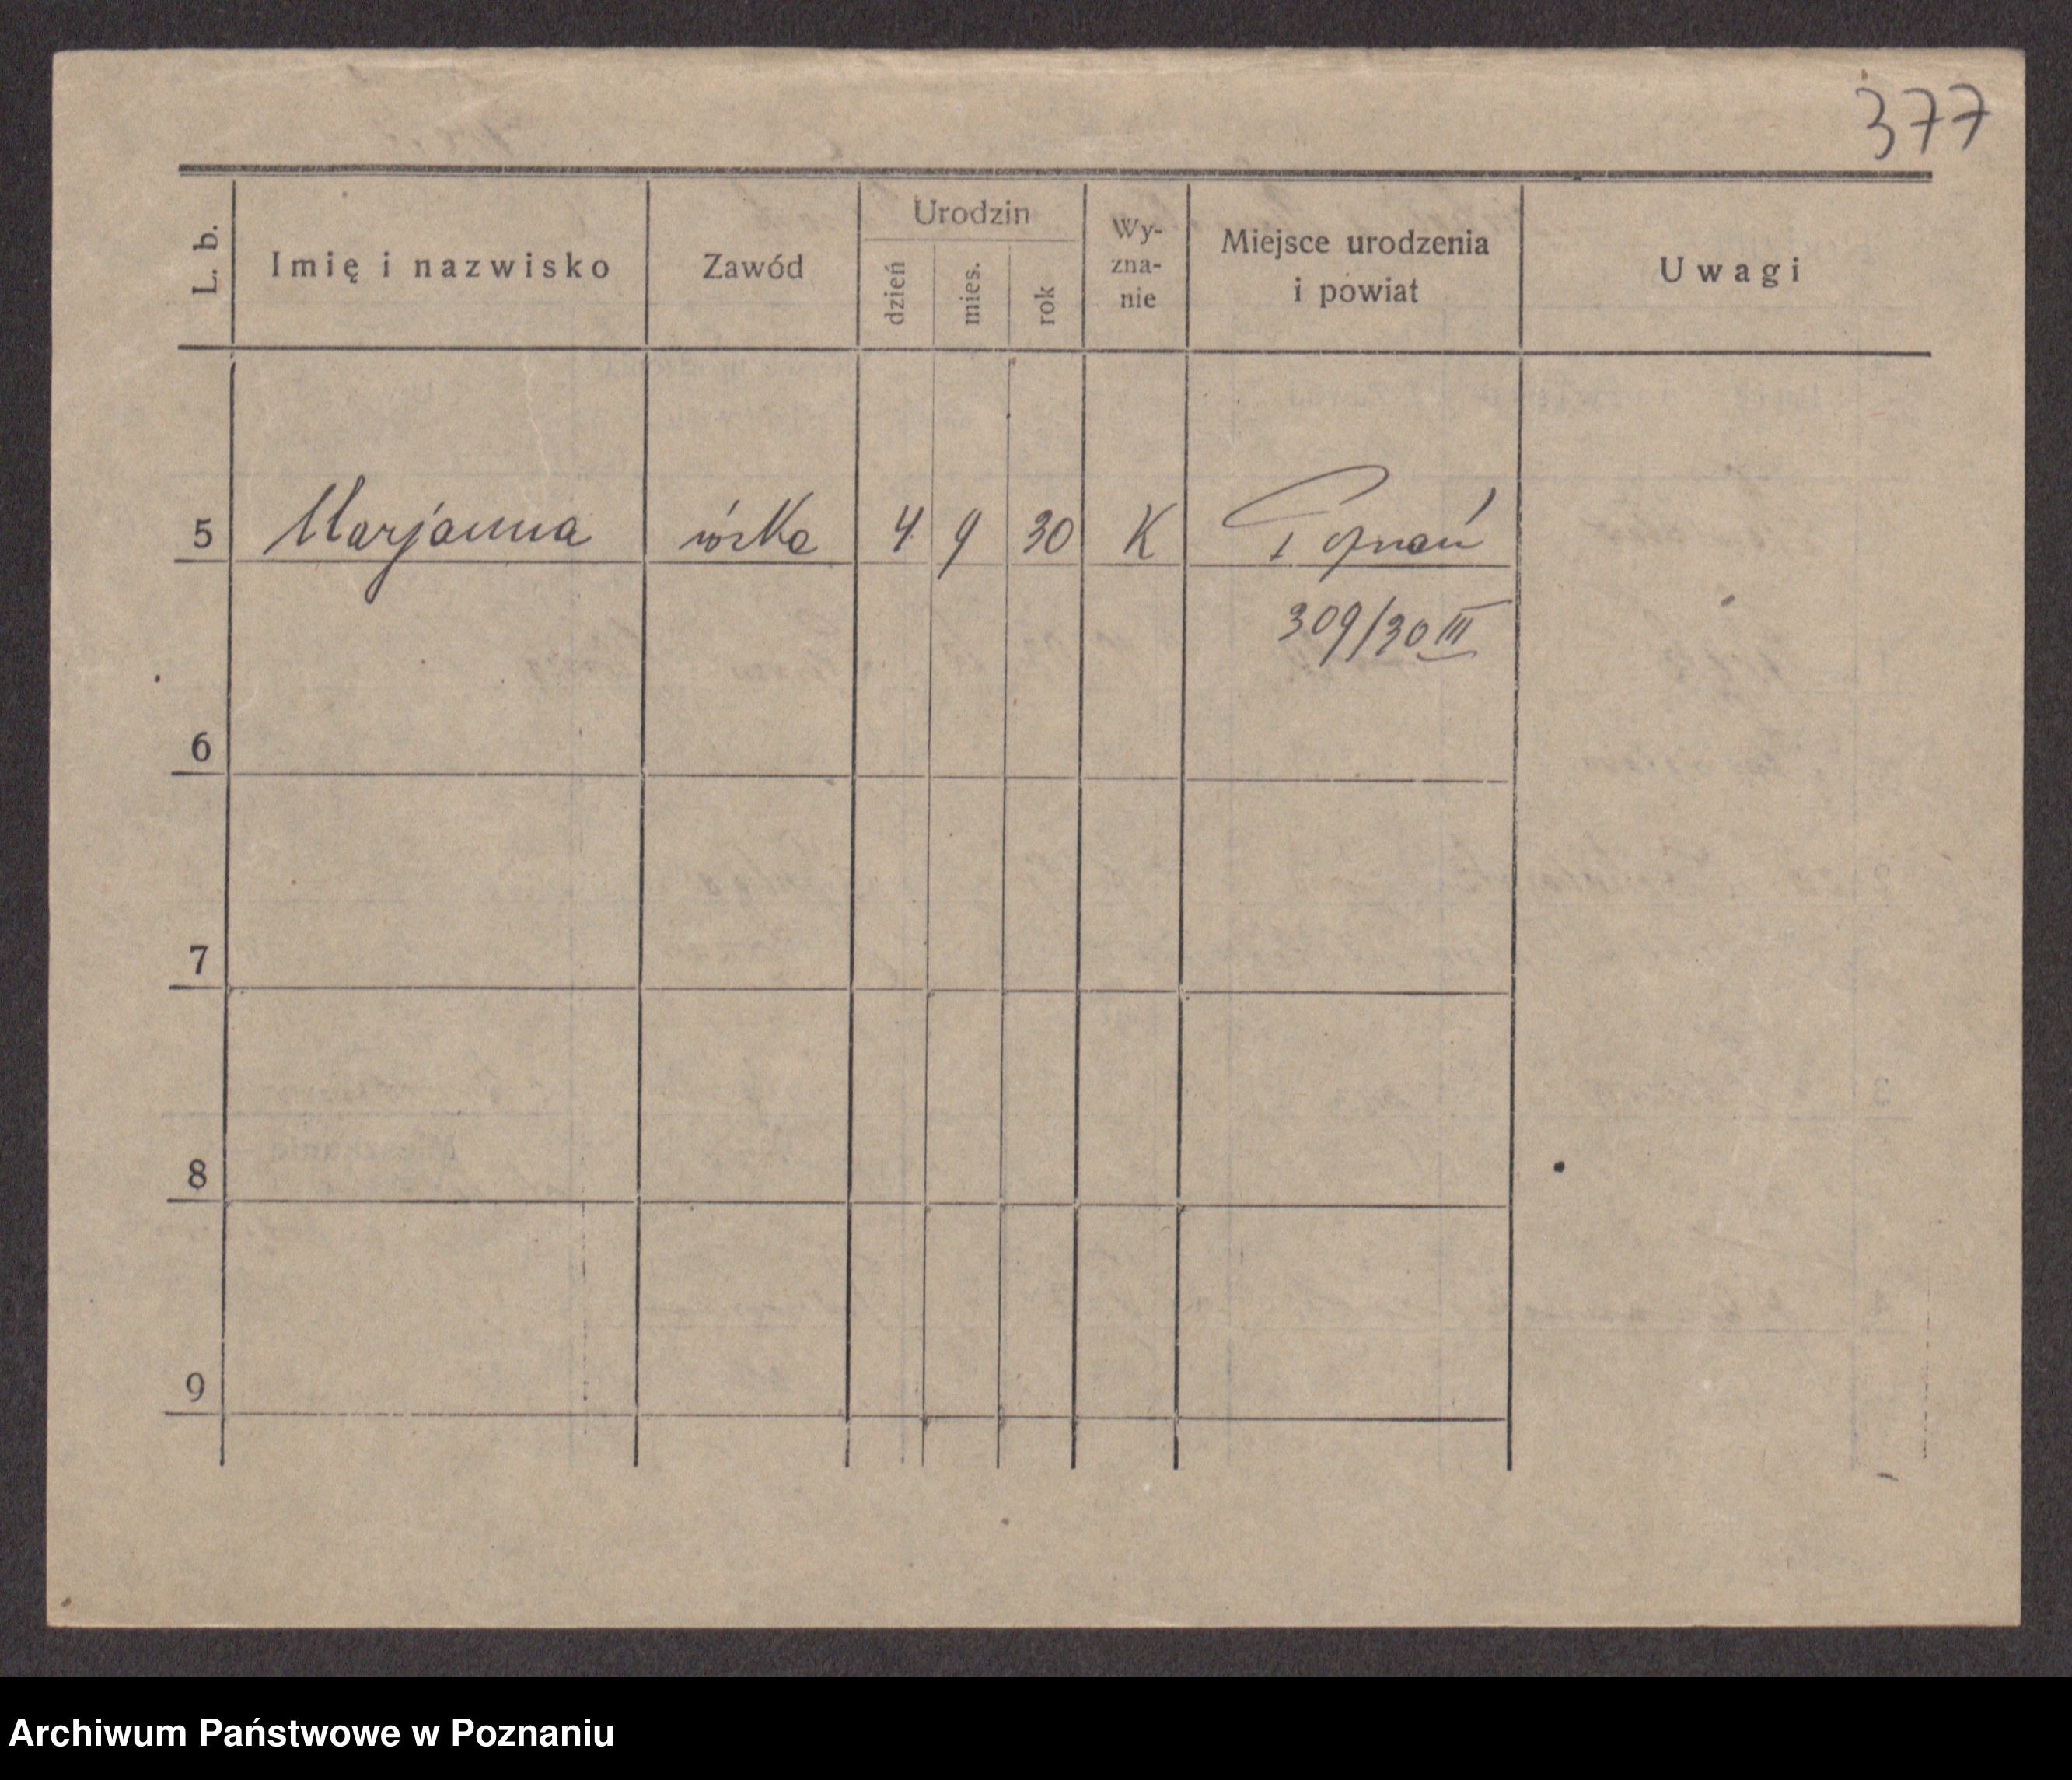 377
L. b. Imię i nazwisko Zawód Urodzin dzień mies. rok Wy-zna-nie Miejsce urodzenia i powiat Uwagi
5 Marjanna córka 4 9 30 K Poznań
309/30 III
6
7
8
9
Archiwum Państwowe w Poznaniu